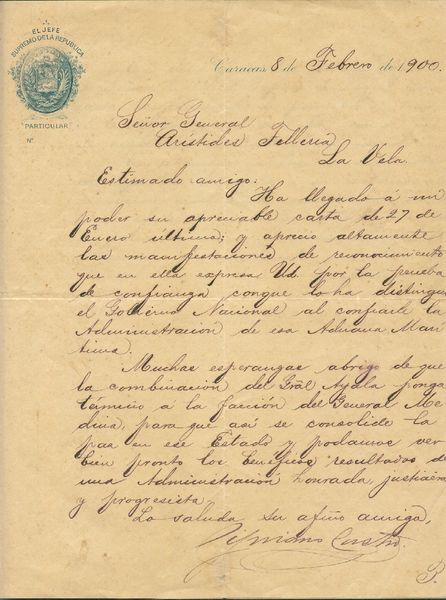 EL JEFE
SUPREMO DE LA REPUBLICA
PARTICULAR
Nº
Caracas 8 de Febrero de 1900.
Señor General
Arístides Tellería
La Vela.
Estimado amigo:
Ha llegado á mi
poder su apreciable carta de 27 de
Enero último; y aprecio altamente
las manifestaciones de reconocimiento
que en ella expresa Ud. por la prueba
de confianza conque lo ha distinguido
el Gobierno Nacional al confiarle la
Administración de esa Aduana Marí-
tima.
Muchas esperanzas abrigo de que
la combinación del Gral Ayala ponga
término á la facción del General Me-
dina, para que así se consolide la
paz en ese Estado y podamos ver
bien pronto los benéficos resultados de
una Administración honrada, justiciera
y progresista.
Lo saluda su afmo amigo,
Cipriano Castro.
P.